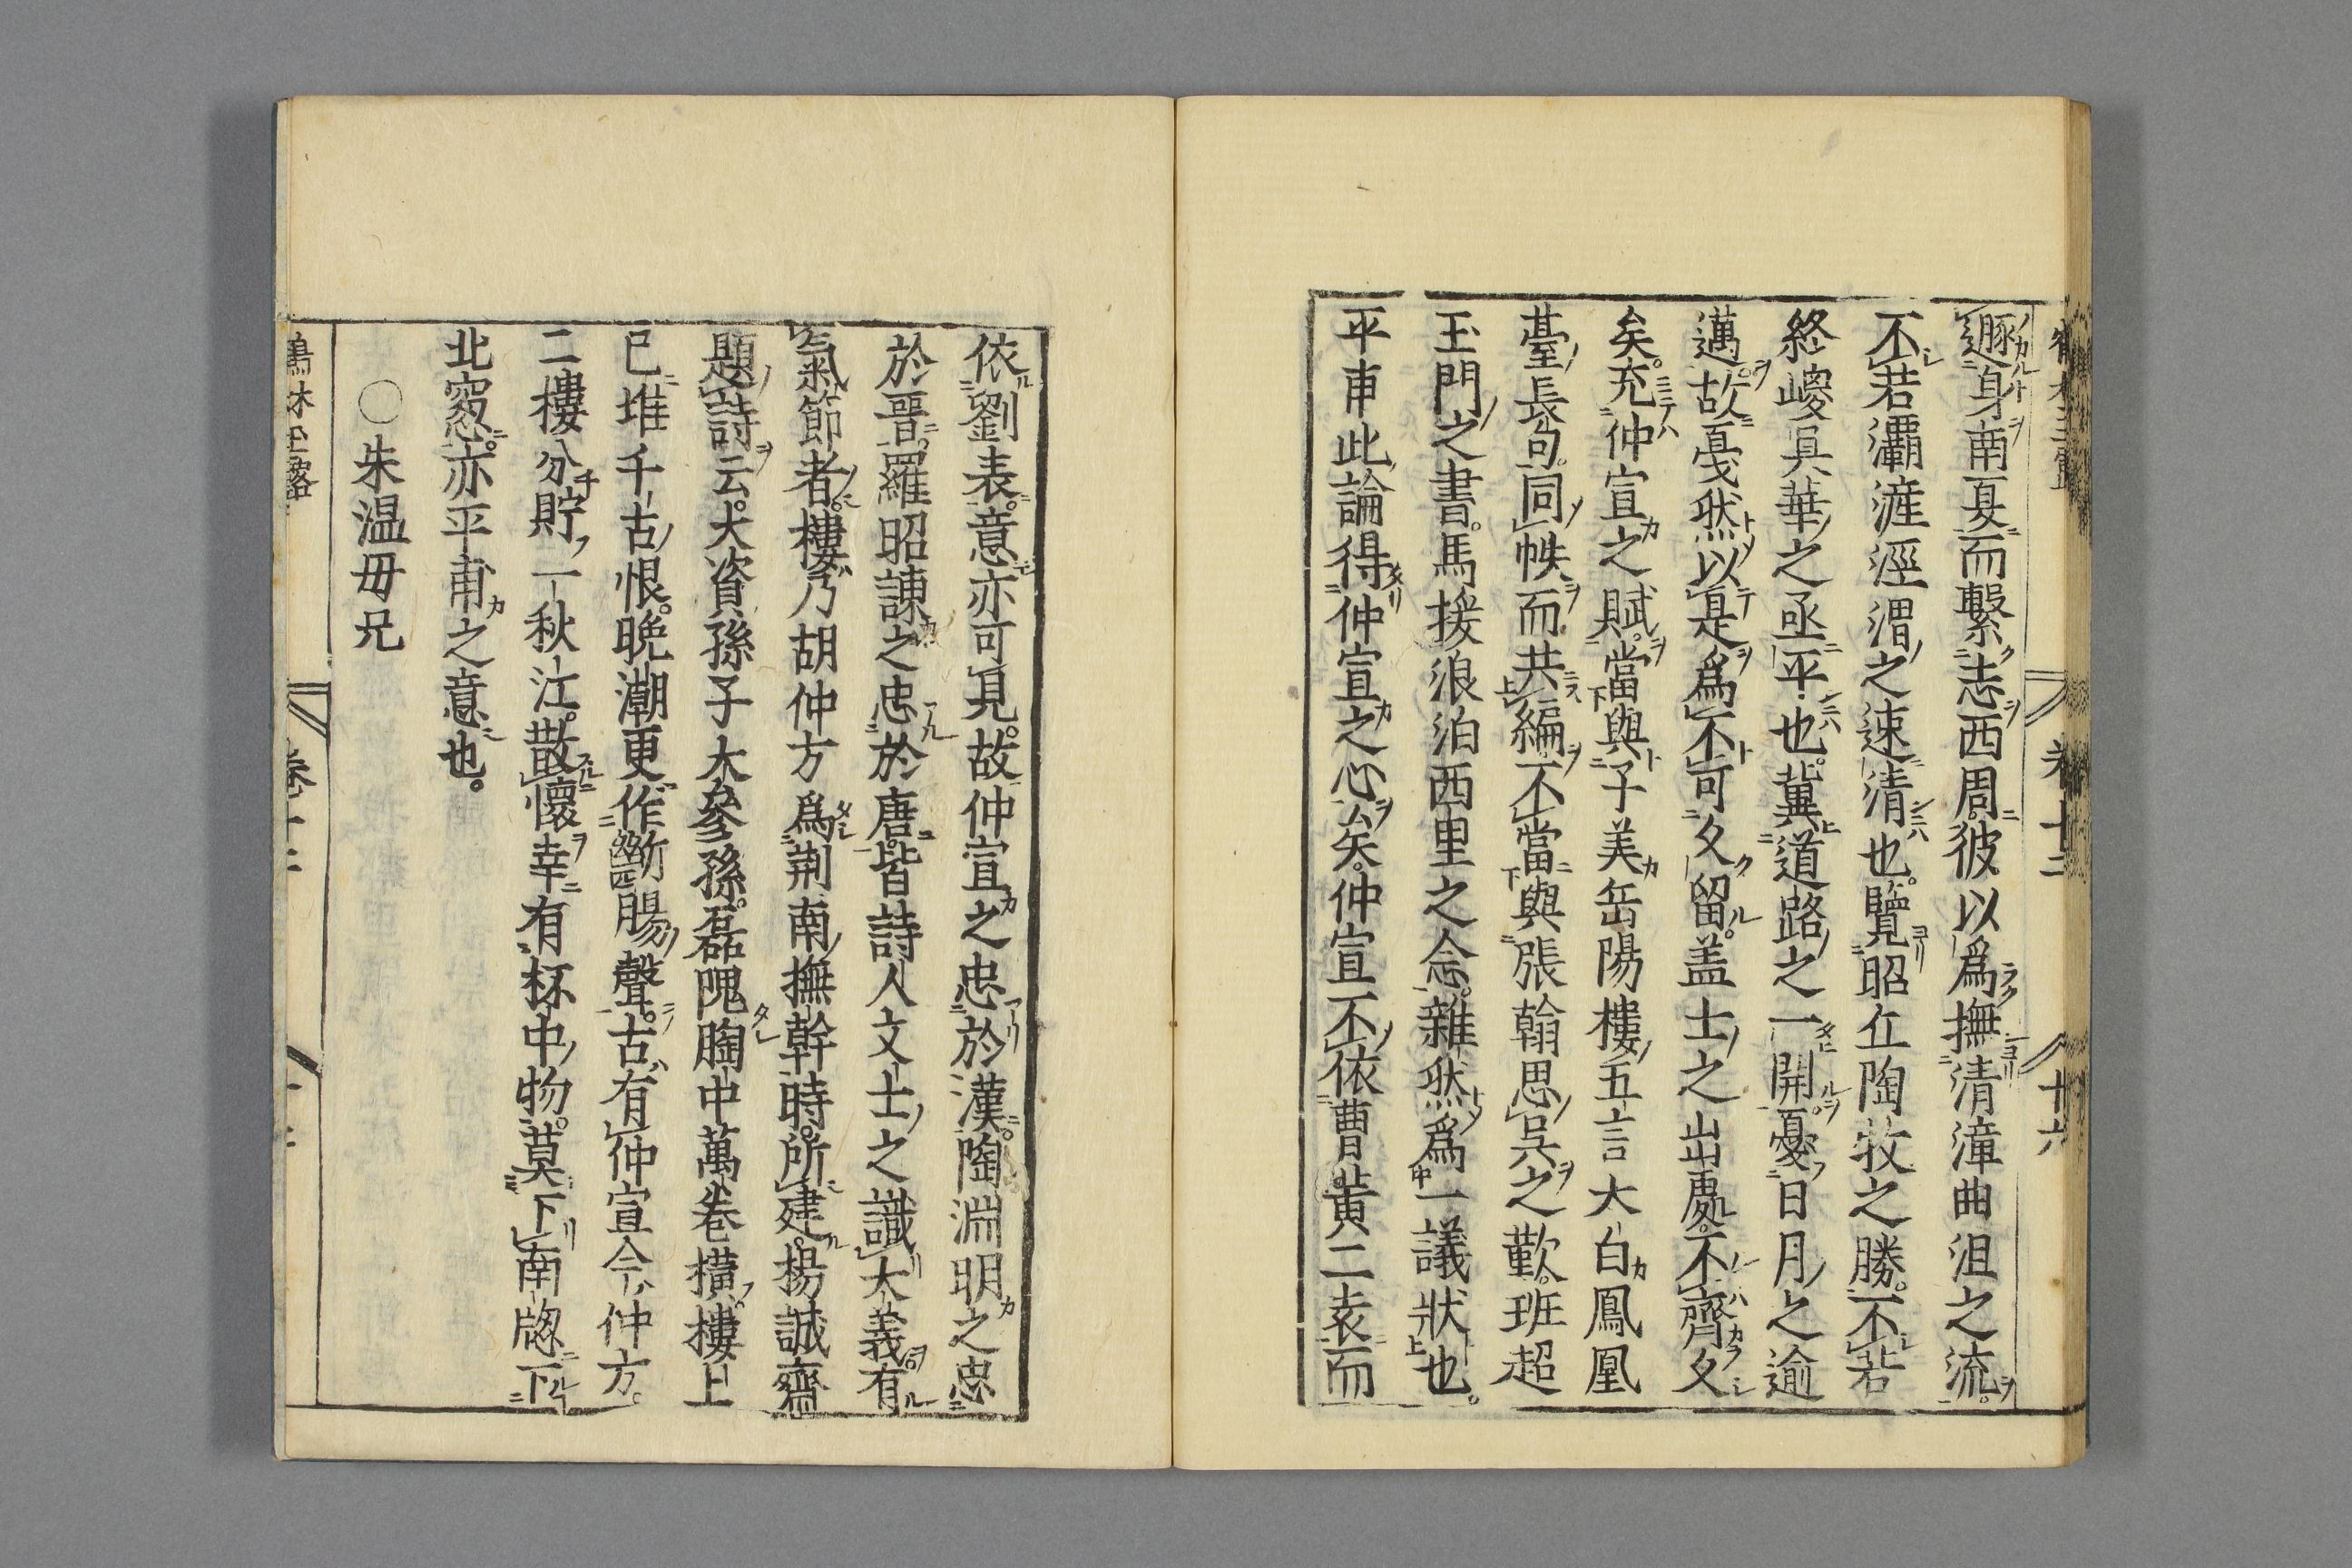 遯身南夏而繫志西周彼以爲撫清漳曲沮之流
不若灞滻涇渭之速清也覽昭丘陶牧之勝不若
終嵕眞華之亟平也冀道路之一開憂日月之逾
邁故戛然以是爲不可久留盖士之出處不齊久
矣充仲宣之賦當與子美岳陽樓五言大白鳳凰
臺長句同帙而共編不當與張翰思呉之歎班超
玉門之書馬援浪泊西里之念雜然爲一議狀也
平甫此論得仲宣之心矣仲宣不依曹黄二袁而
卷十二
十六
依劉表意亦可見故仲宣之忠於漢陶淵明之忠
於晋羅昭諫之忠於唐皆詩人文士之識大義有
氣節者樓乃胡仲方爲荆南撫幹時所建楊誠齋
題詩云大資孫子大參孫磊隗胸中萬卷橫樓上
已堆千古恨晩潮更作斷腸聲古有仲宣今仲方
二樓分貯一秋江散懷幸有杯中物莫下南牎下
北窓亦平甫之意也
○朱温毋兄
鶴林玉露
卷十二